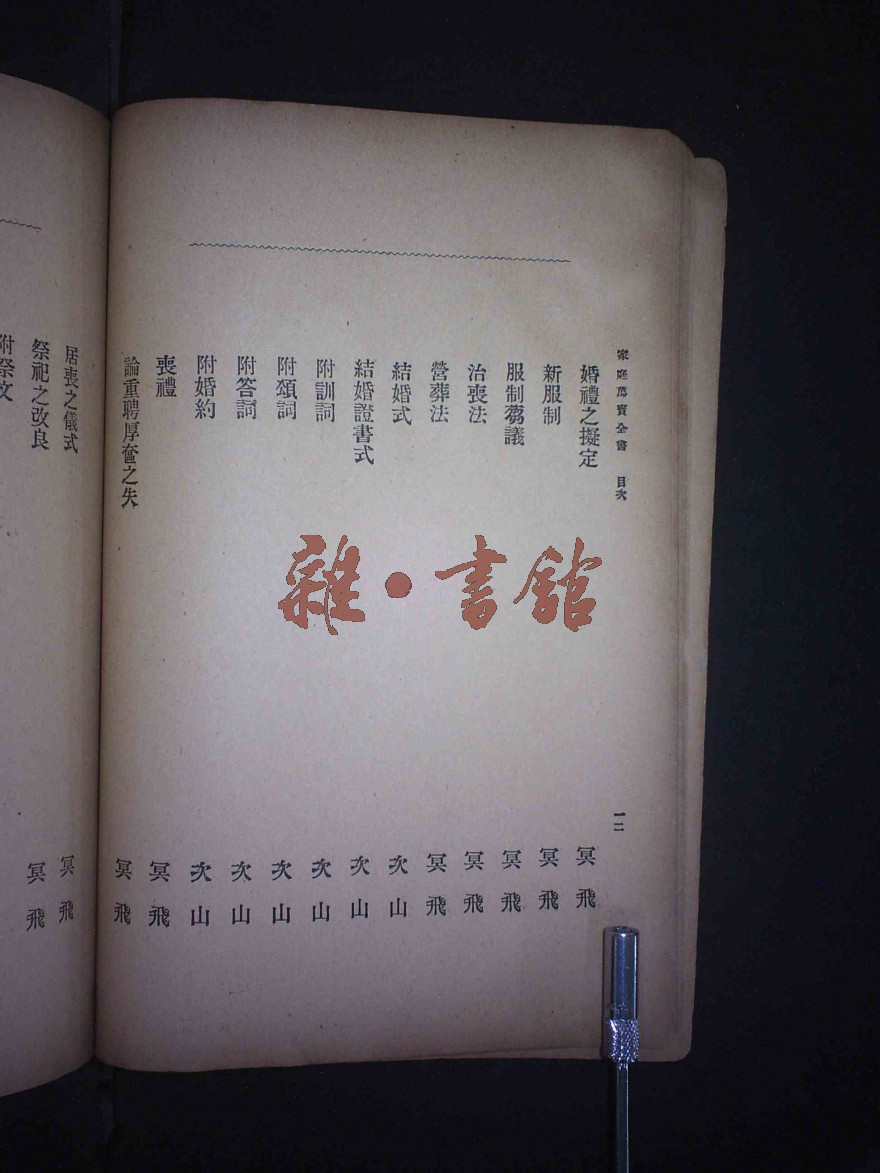 家庭萬寶全書 目次 一二
婚禮之擬定 冥飛
新服制 冥飛
服制蒭議 冥飛
治喪法 冥飛
營葬法 冥飛
結婚式 次山
結婚證書式 次山
附訓詞 次山
附頌詞 次山
附答詞 次山
附婚約 次山
喪禮 冥飛
論重聘厚奩之失 冥飛
居喪之儀式 冥飛
祭祀之改良 冥飛
附祭文
雜·書館